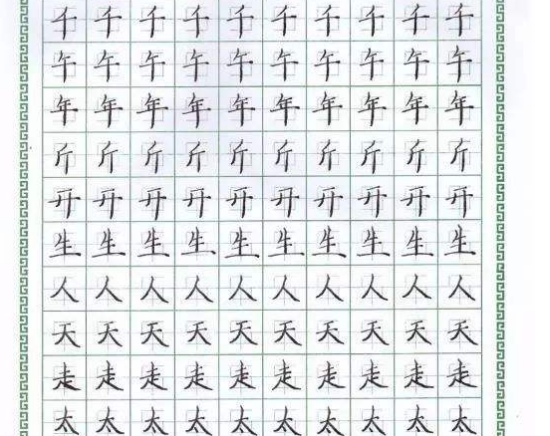 千千千千千千千千千千
午午午午午午午午午午
年年年年年年年年年年
斤斤斤斤斤斤斤斤斤斤
开开开开开开开开开开
生生生生生生生生生生
人人人人人人人人人人
天天天天天天天天天天
走走走走走走走走走走
太太太太太太太太太太